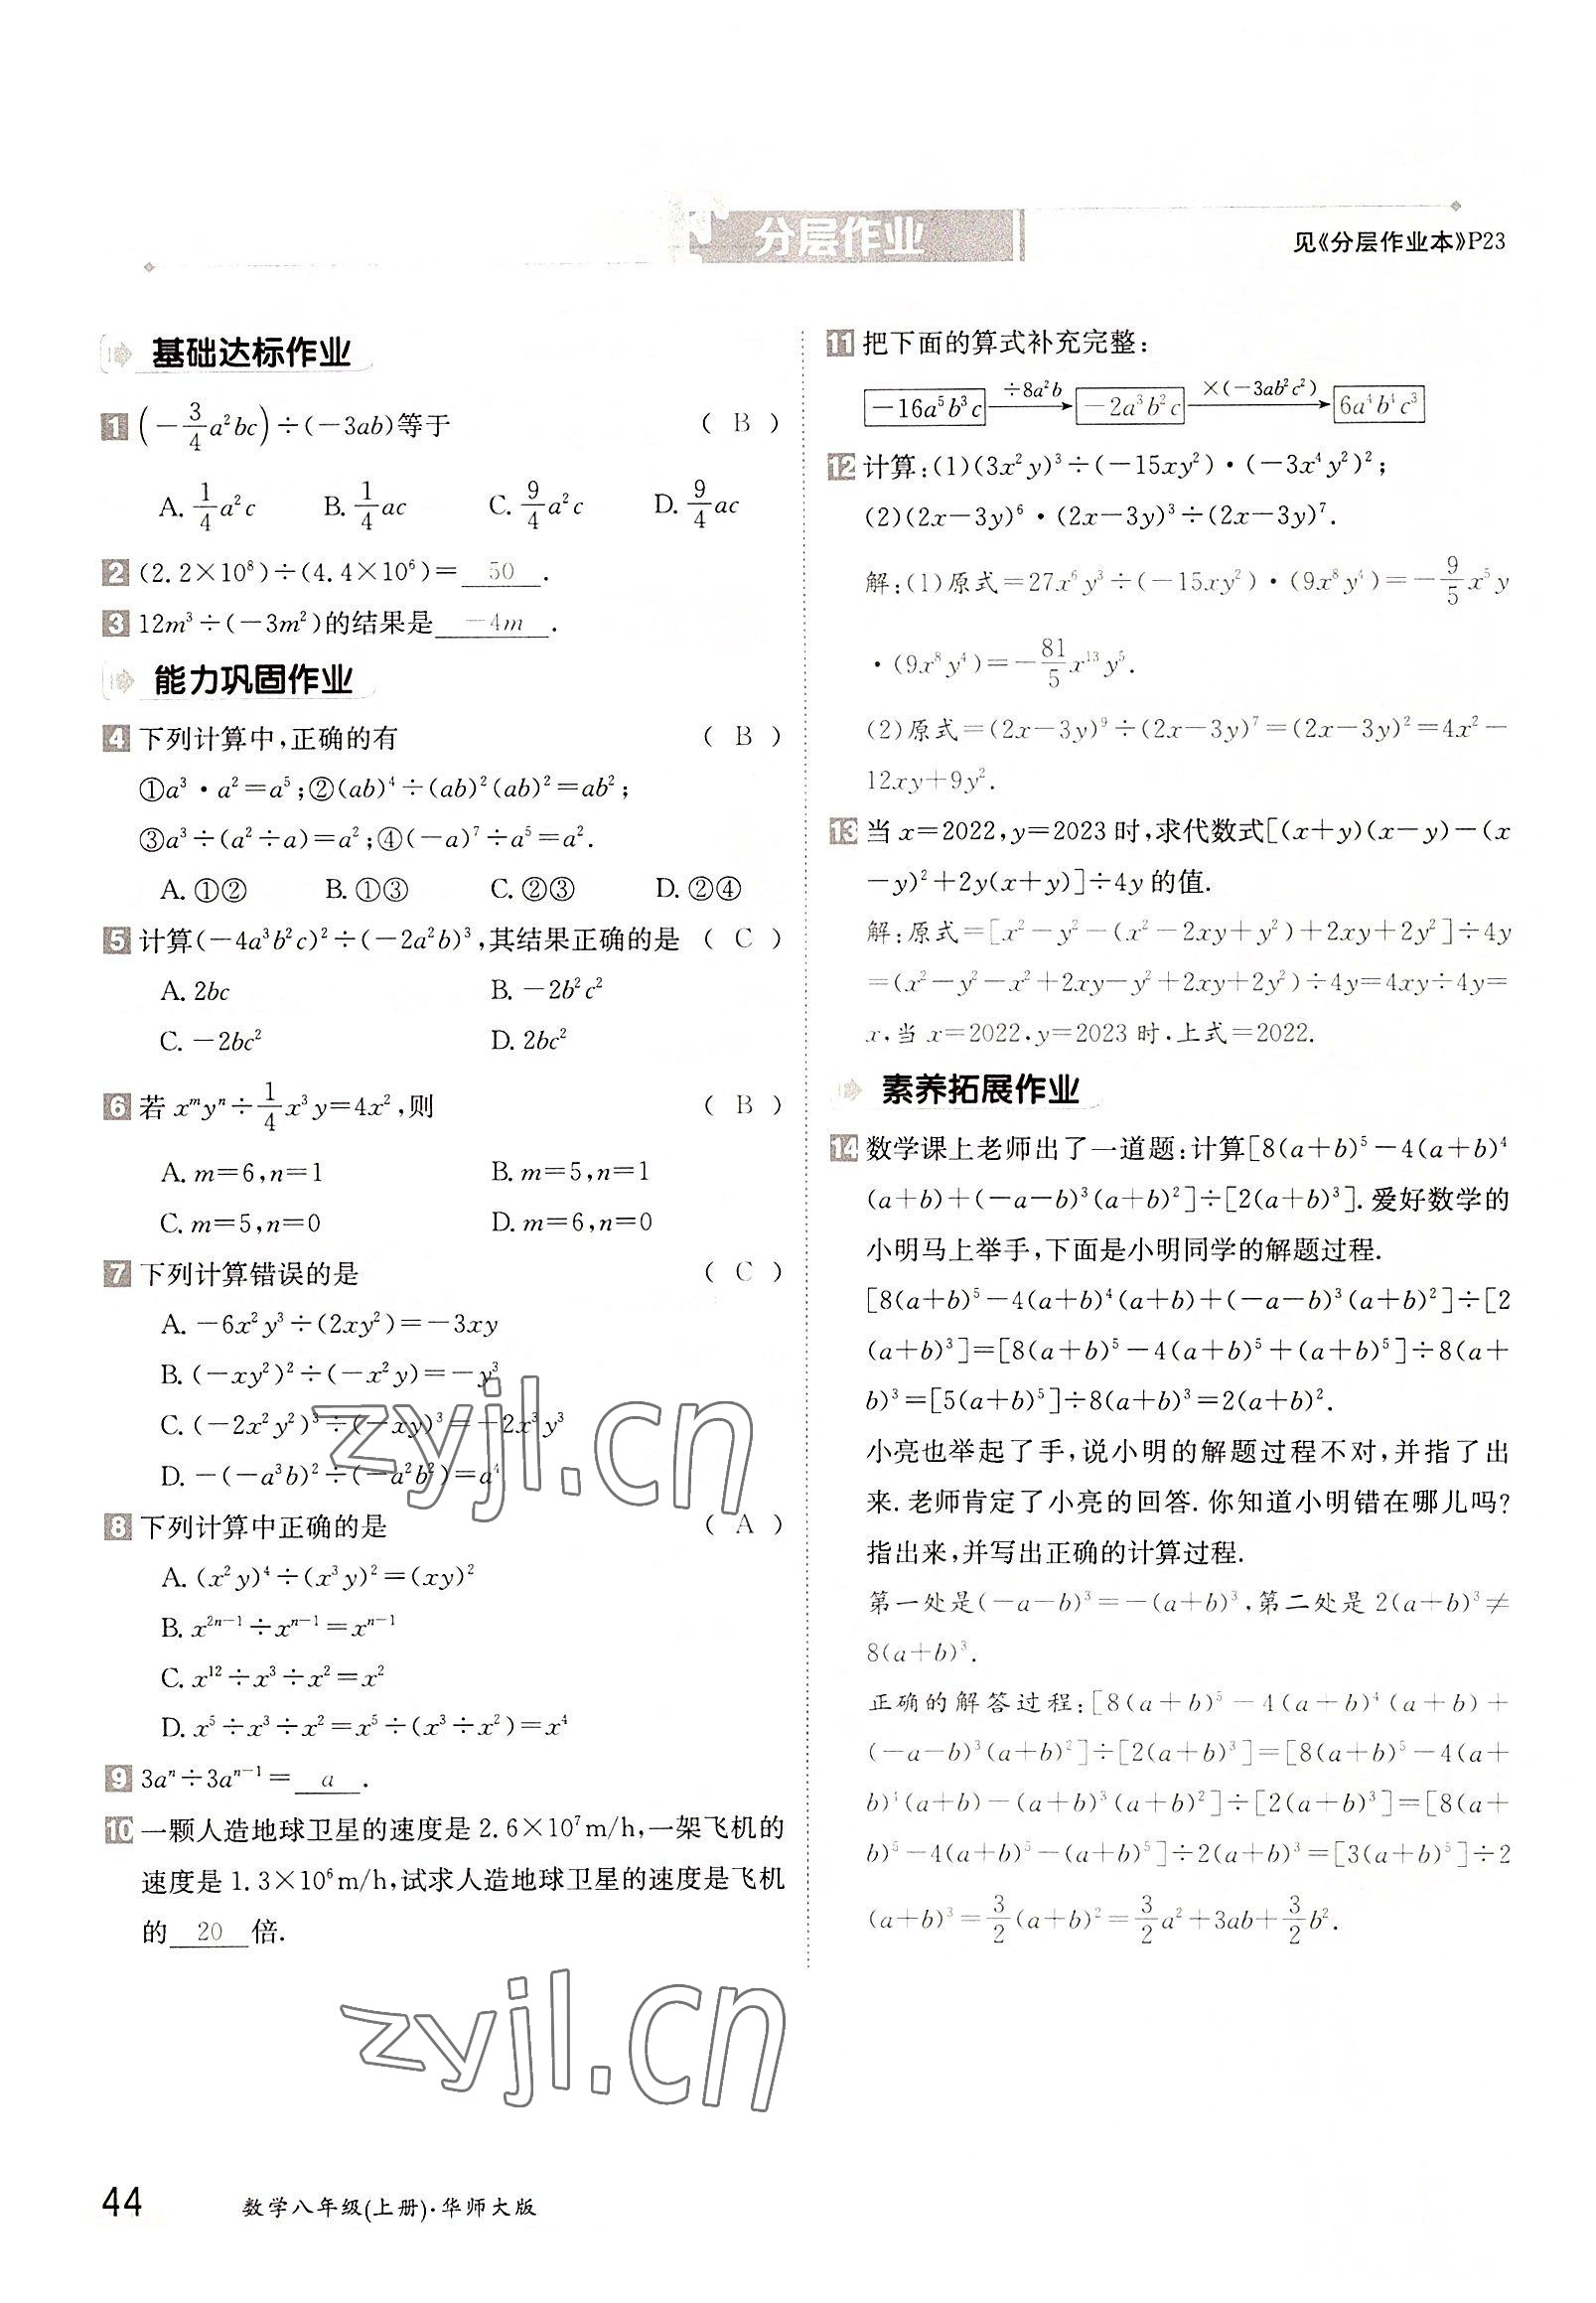 分层作业
见《分层作业本》P23
基础达标作业
1 (-3/4 a²bc)÷(-3ab)等于 ( B )
A. 1/4 a²c B. 1/4 ac C. 9/4 a²c D. 9/4 ac
2 (2.2×10⁸)÷(4.4×10⁶)= 50 .
3 12m³÷(-3m²)的结果是 -4m .
能力巩固作业
4 下列计算中,正确的有 ( B )
①a³·a²=a⁵;②(ab)⁴÷(ab)²(ab)²=ab²;
③a³÷(a²÷a)=a²;④(-a)⁷÷a⁵=a².
A. ①② B. ①③ C. ②③ D. ②④
5 计算(-4a³b²c)²÷(-2a²b)³,其结果正确的是 ( C )
A. 2bc B. -2b²c²
C. -2bc² D. 2bc²
6 若 xᵐyⁿ÷1/4 x³y=4x²,则 ( B )
A. m=6,n=1 B. m=5,n=1
C. m=5,n=0 D. m=6,n=0
7 下列计算错误的是 ( C )
A. -6x²y³÷(2xy²)=-3xy
B. (-xy²)²÷(-x²y)=-y³
C. (-2x²y²)³÷(-xy)³=-2x³y³
D. -(-a³b)²÷(-a²b²)=a⁴
8 下列计算中正确的是 ( A )
A. (x²y)⁴÷(x³y)²=(xy)²
B. x²ⁿ⁻¹÷xⁿ⁻¹=xⁿ⁻¹
C. x¹²÷x³÷x²=x²
D. x⁵÷x³÷x²=x⁵÷(x³÷x²)=x⁴
9 3aⁿ÷3aⁿ⁻¹= a .
10 一颗人造地球卫星的速度是 2.6×10⁷m/h,一架飞机的
速度是 1.3×10⁶m/h,试求人造地球卫星的速度是飞机
的 20 倍.
11 把下面的算式补充完整:
-16a⁵b³c ÷8a²b → -2a³b²c ×(-3ab²c²) → 6a⁴b⁴c³
12 计算:(1)(3x²y)³÷(-15xy²)·(-3x⁴y²)²;
(2)(2x-3y)⁶·(2x-3y)³÷(2x-3y)⁷.
解:(1)原式=27x⁶y³÷(-15xy²)·(9x⁸y⁴)=-9/5 x⁵y
·(9x⁸y⁴)=-81/5 x¹³y⁵.
(2)原式=(2x-3y)⁹÷(2x-3y)⁷=(2x-3y)²=4x²-
12xy+9y².
13 当 x=2022,y=2023 时,求代数式[(x+y)(x-y)-(x
-y)²+2y(x+y)]÷4y 的值.
解:原式=[x²-y²-(x²-2xy+y²)+2xy+2y²]÷4y
=(x²-y²-x²+2xy-y²+2xy+2y²)÷4y=4xy÷4y=
x,当 x=2022,y=2023 时,上式=2022.
素养拓展作业
14 数学课上老师出了一道题:计算[8(a+b)⁵-4(a+b)⁴
(a+b)+(-a-b)³(a+b)²]÷[2(a+b)³]. 爱好数学的
小明马上举手,下面是小明同学的解题过程.
[8(a+b)⁵-4(a+b)⁴(a+b)+(-a-b)³(a+b)²]÷[2
(a+b)³]=[8(a+b)⁵-4(a+b)⁵+(a+b)⁵]÷8(a+
b)³=[5(a+b)⁵]÷8(a+b)³=2(a+b)².
小亮也举起了手,说小明的解题过程不对,并指了出
来. 老师肯定了小亮的回答. 你知道小明错在哪儿吗?
指出来,并写出正确的计算过程.
第一处是(-a-b)³=-(a+b)³,第二处是 2(a+b)³≠
8(a+b)³.
正确的解答过程:[8(a+b)⁵-4(a+b)⁴(a+b)+
(-a-b)³(a+b)²]÷[2(a+b)³]=[8(a+b)⁵-4(a+
b)⁴(a+b)-(a+b)³(a+b)²]÷[2(a+b)³]=[8(a+
b)⁵-4(a+b)⁵-(a+b)⁵]÷2(a+b)³=[3(a+b)⁵]÷2
(a+b)³=3/2(a+b)²=3/2 a²+3ab+3/2 b².
zyjl.cn
zyjl.cn
44 数学八年级(上册)·华师大版